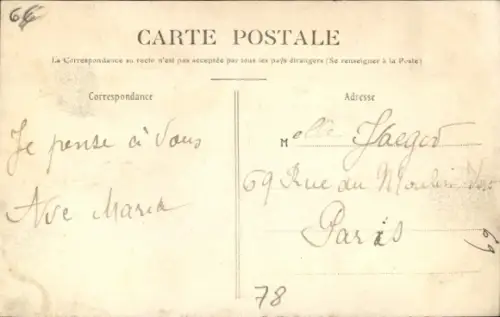 64
CARTE POSTALE
La Correspondance au recto n'est pas acceptée par tous les pays étrangers (Se renseigner à la Poste)
Correspondance
Adresse
Je pense à vous
Ave Maria
Melle Jaegor
69 Rue du Moulin Vert
Paris
69
78